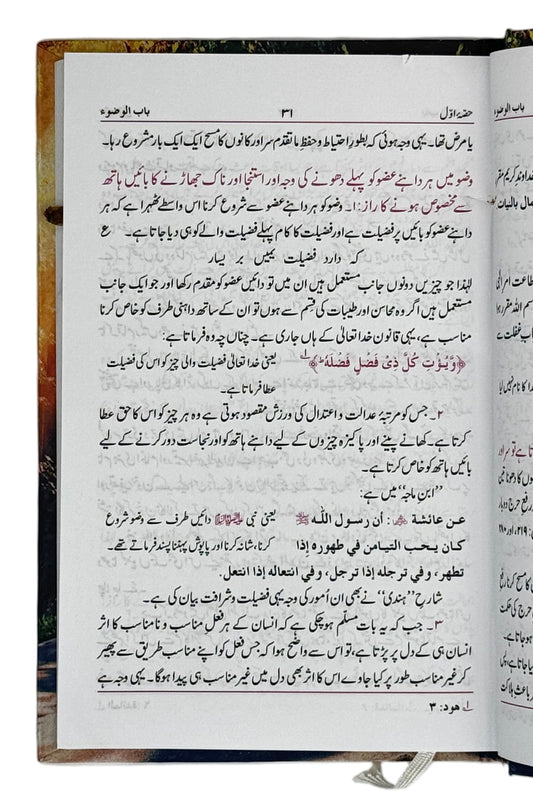 حصّۂ اوّل ۳۱ باب الوضوء
یا مرض تھا۔ یہی وجہ ہوئی کہ بطور احتیاط و حفظِ ما تقدم سر اور کانوں کا مسح ایک ایک بار مشروع رہا۔
وضو میں ہر داہنے عضو کو پہلے دھونے کی وجہ اور استنجا اور ناک جھاڑنے کا بائیں ہاتھ
سے مخصوص ہونے کا راز: ۱۔ وضو کو ہر داہنے عضو سے شروع کرنا اس واسطے ٹھہرا ہے کہ ہر
داہنے عضو کو بائیں پر فضیلت ہے اور فضیلت کا کام پہلے فضیلت والے کو ہی دیا جاتا ہے۔ ع
کہ دارد فضیلت یمیں بر یسار
لہٰذا جو چیزیں دونوں جانب مستعمل ہیں ان میں تو دائیں عضو کو مقدم رکھا اور جو ایک جانب
مستعمل ہیں اگر وہ محاسن اور طیبات کی قسم سے ہوں تو ان کے ساتھ داہنی طرف کو خاص کرنا
مناسب ہے، یہی قانون خدا تعالیٰ کے ہاں جاری ہے۔ چناں چہ وہ فرماتا ہے:
﴿وَّیُؤۡتِ کُلَّ ذِیۡ فَضۡلٍ فَضۡلَہٗ ؕ﴾ یعنی خدا تعالیٰ فضیلت والی چیز کو اس کی فضیلت
عطا فرماتا ہے۔
۲۔ جس کو مرتبۂ عدالت و اعتدال کی ورزش مقصود ہوتی ہے وہ ہر چیز کو اس کا حق عطا
کرتا ہے۔ کھانے پینے اور پاکیزہ چیزوں کے لیے داہنے ہاتھ کو اور نجاست دور کرنے کے لیے
بائیں ہاتھ کو خاص کرتا ہے۔
’’ابن ماجہ‘‘ میں ہے:
عن عائشة ؓ: أن رسول الله ﷺ یعنی نبی ﷺ دائیں طرف سے وضو شروع
كان يحب التيامن في طهوره إذا کرنا، شانہ کرنا اور پاپوش پہننا پسند فرماتے تھے۔
تطهر، وفي ترجله إذا ترجل، وفي انتعاله إذا انتعل.
شارح ’’ہندی‘‘ نے بھی ان اُمور کی وجہ یہی فضیلت و شرافت بیان کی ہے۔
۳۔ جب کہ یہ بات مسلم ہو چکی ہے کہ انسان کے ہر فعلِ مناسب و نامناسب کا اثر
انسان ہی کے دل پر پڑتا ہے، تو اس سے واضح ہوا کہ جس فعل کو اپنے مناسب طریق سے پھیر
کر غیر مناسب طور پر کیا جاوے اس کا اثر بھی دل میں غیر مناسب ہی پیدا ہوگا۔ یہی وجہ ہے
لے ھود: ۳
باب الوضوء